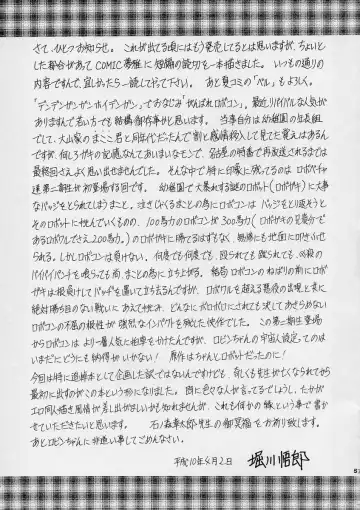 さて、ひとつお知らせ。これが出てる頃にはもう発売してるとは思いますが、ちょいとした
都合があってCOMIC夢雅に短編の読切を一本描きました。いつもの通りの
内容ですんで、宜しかったら一読してやって下さい。あと夏コミの「ベル」もよろしく。
「デンデンデンデン ホイデンデン」でおなじみ「がんばれロボコン」、最近リバイバルな人気が
ありますんで若い方でも結構御存知かと思います。当事自分は幼稚園の出会組
で、大山家のまこと君と同年代だったんで割と感情移入して見てた覚えはあるん
ですが、何しろガキの記憶なんてあいまいなモンで、名古屋の時番で再放送されるまでは
最終回さえよく思い出せませんでした。そんな中で特に印象に残ってるのはロボガキ
達第二期生が初登場する回です。幼稚園で大暴れする謎のロボット(ロボガキ)に大事
なバッジをとられてしまうまこと。まきぞくるまことの為にロボコンはバッジをとり返そうと
そのロボットに挑んでいくものの、100馬力のロボコンが300馬力(ロボガキの兄貴分で
あるロボワルでさえ200馬力。)のロボガキに勝てるはずもなく、無惨にも地面に叩きふせら
れる。しかしロボコンは負けない。何度でも何度でも、殴られても蹴られても、必殺の
パイパイパンチを喰らっても尚、まことの為に立ち上がる。結局ロボコンのねばりの前にロボ
ガキは根負けしてバッヂを返して立ち去るんですが、ロボワルを超える悪役の出現と常に
絶対勝ち目のない戦いにあえて挑み、どんなにボロボロにされても決してあきらめない
ロボコンの不屈の根性が強烈なインパクトを残した快作でした。この第二期生登場
からロボコンはより一層人気に拍車をかけたんですが、ロビンちゃんの宇宙人設定ってのは
いまだにどうにも納得がいかない! 原作はちゃんとロボットだったのに!
今回は特に追悼本として企画した訳ではないんですけども、奇しくも先生が亡くなられてから
最初に出すのがこの本という形になりました。既に色々な人が言ってるでしょうし、たかが
エロ同人描き風情が差し出がましいかも知れませんが、これも何かの縁という事で書か
せていただきたいと思います。石ノ森章太郎先生の御冥福をお祈り致します。
あとロビンちゃんに非道い事してごめんなさい。
平成10年4月2日 堀川悟郎